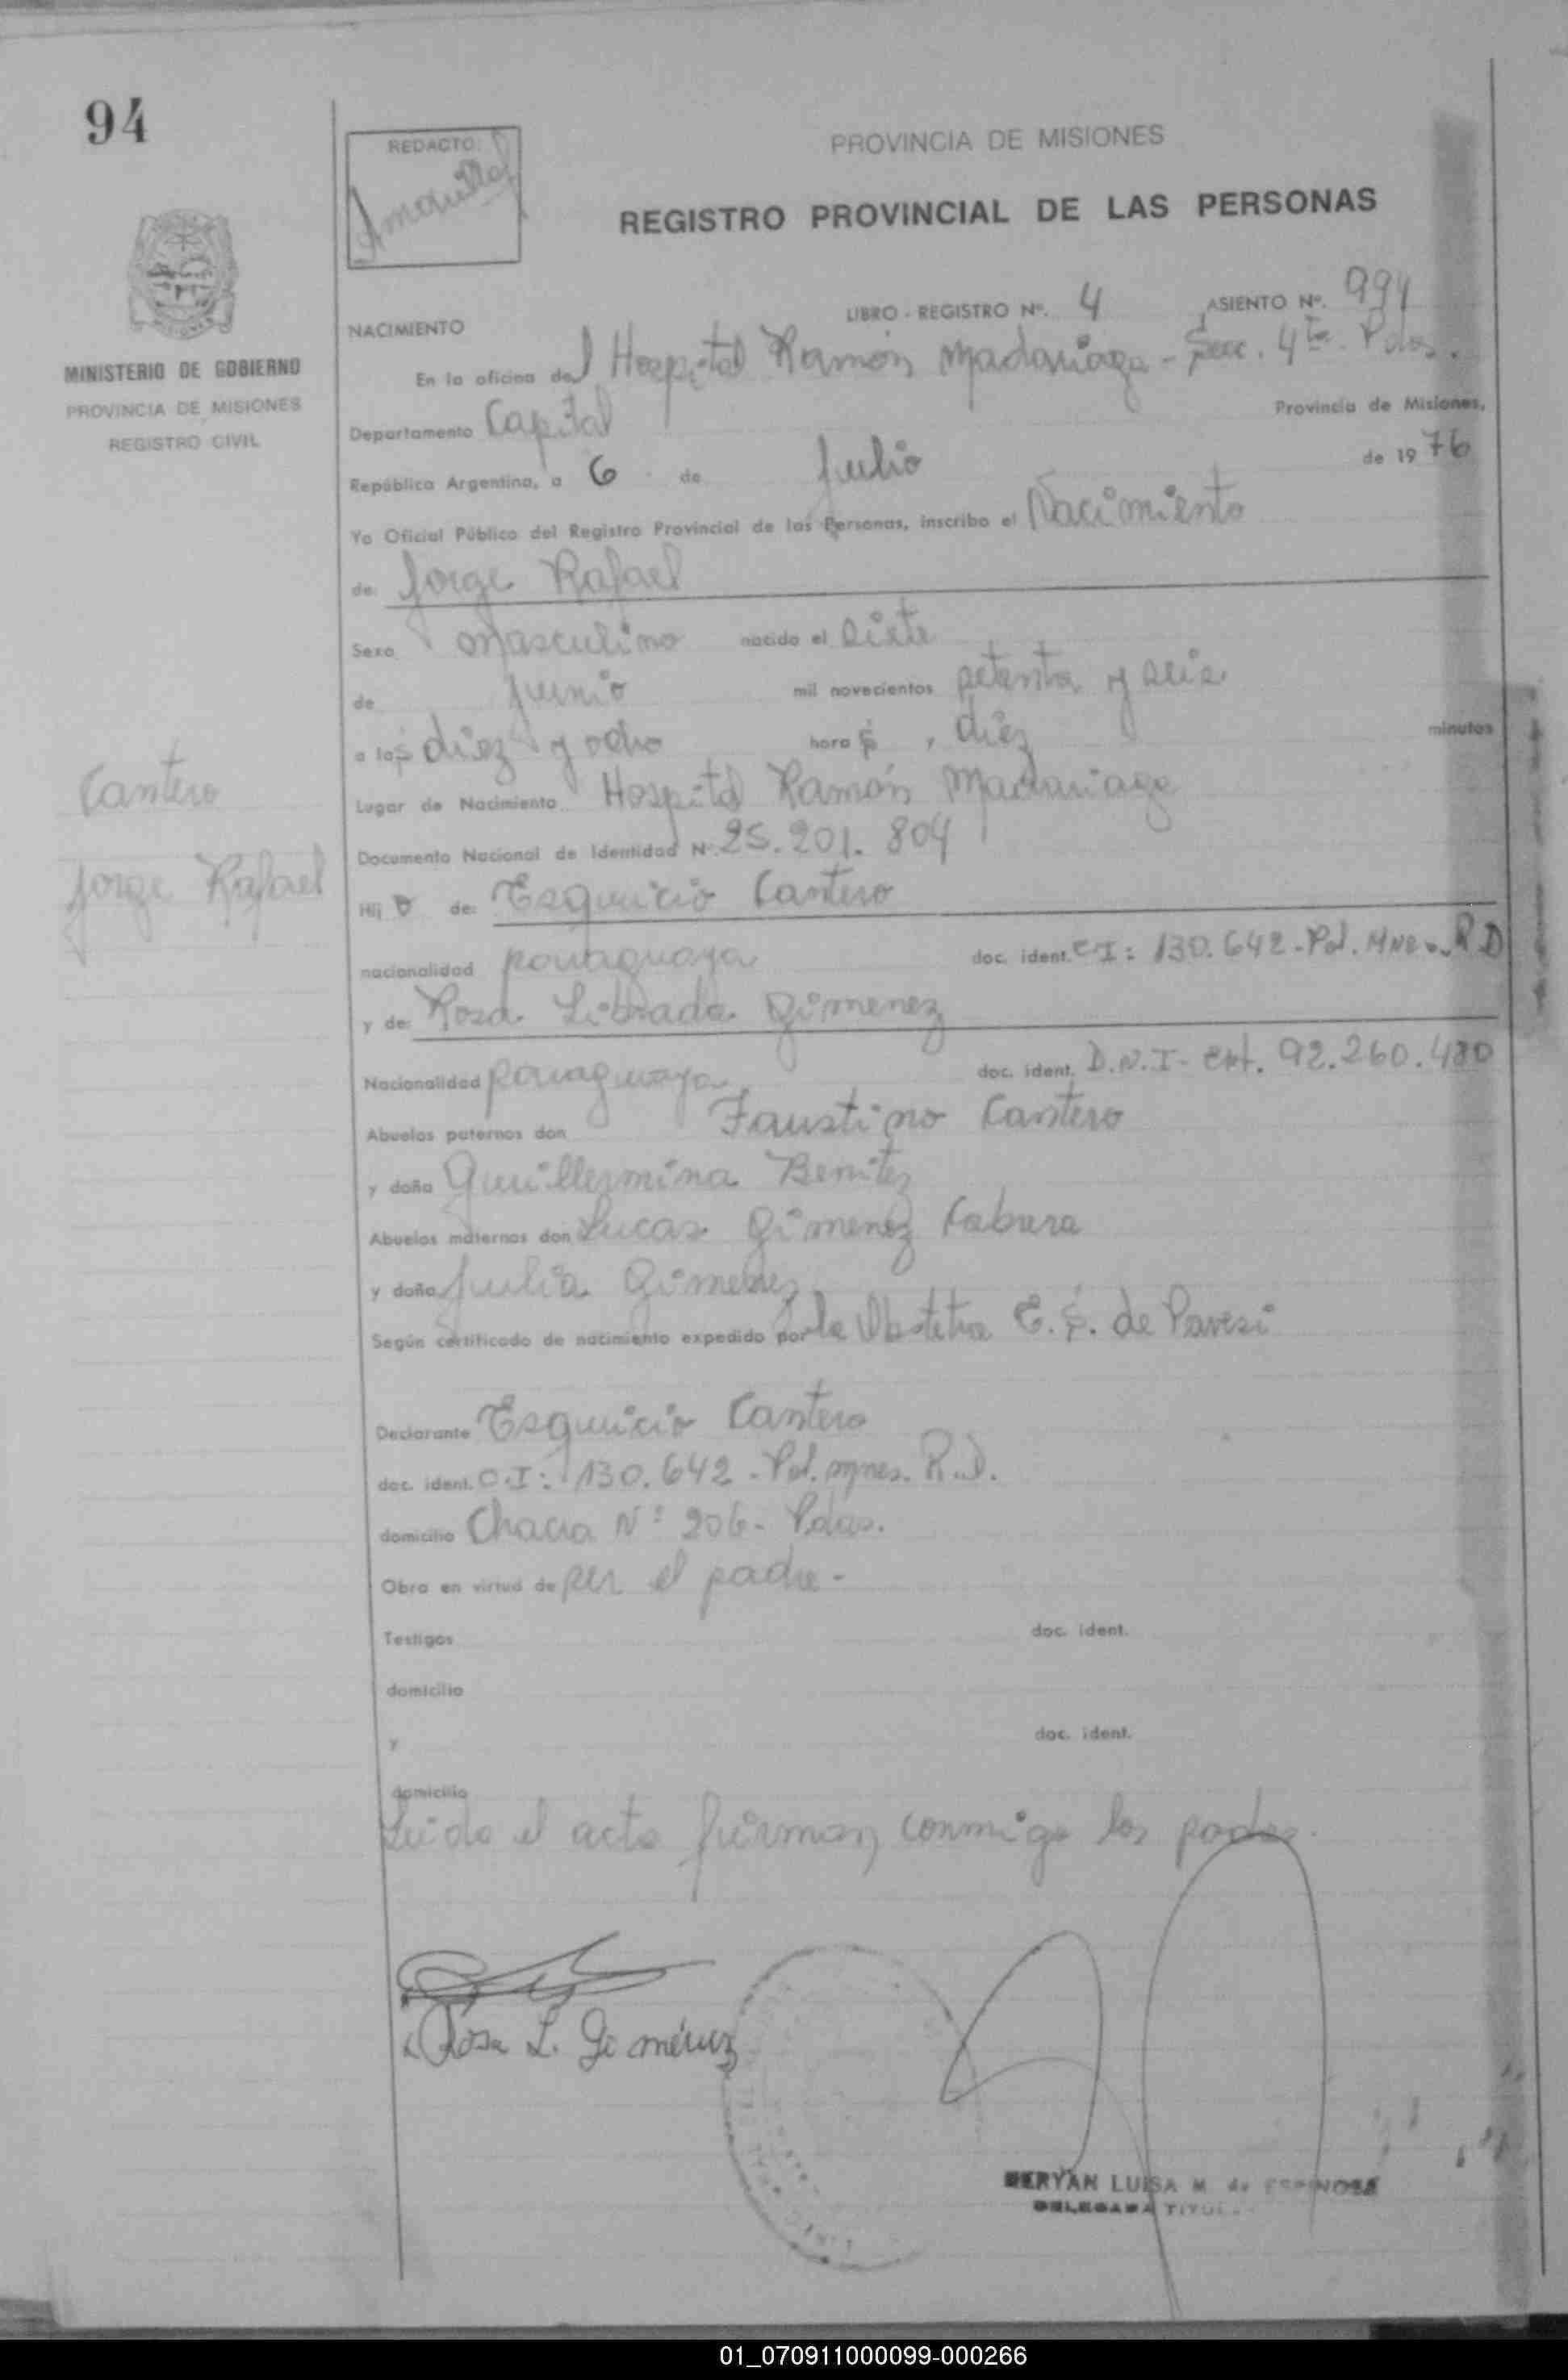 94
REDACTO:
PROVINCIA DE MISIONES
REGISTRO PROVINCIAL DE LAS PERSONAS
MINISTERIO DE GOBIERNO
PROVINCIA DE MISIONES
REGISTRO CIVIL
LIBRO - REGISTRO Nº. 4 ASIENTO Nº. 994
NACIMIENTO
En la oficina del Hospital Ramón Madariaga - Secc. 4ta. Pdas.
Departamento Capital Provincia de Misiones,
República Argentina, a 6 de Julio de 1976
Yo Oficial Público del Registro Provincial de las Personas, inscribo el Nacimiento
de: Jorge Rafael
Sexo Masculino nacido el Siete
de Junio mil novecientos setenta y seis
a las diez y ocho horas, diez minutos
Cantero
Jorge Rafael
Lugar de Nacimiento Hospital Ramón Madariaga
Documento Nacional de Identidad Nº. 25.201.804
Hijo de: Esquicio Cantero
nacionalidad paraguaya doc. ident. C.I: 130.642 - Pol. Mnes. R D
y de: Rosa Librada Gimenez
Nacionalidad paraguaya doc. ident. D.N.I - Ext. 92.260.480
Abuelos paternos don Faustino Cantero
y doña Guillermina Benitez
Abuelos maternos don Lucas Gimenez Cabrera
y doña Julia Gimenez
Según certificado de nacimiento expedido por la Obstetra E. S. de Pavesi
Declarante Esquicio Cantero
doc. ident. C.I: 130.642 - Pol. Mnes. R.D.
domicilio Chacra Nº 206 - Pdas.
Obra en virtud de ser el padre -
Testigos doc. ident.
domicilio
y doc. ident.
domicilio
Leida el acta firman conmigo los padres.
Rosa L. Giménez
MERYAN LUISA M de ESPINOSA
DELEGADA TITULAR
01_070911000099-000266